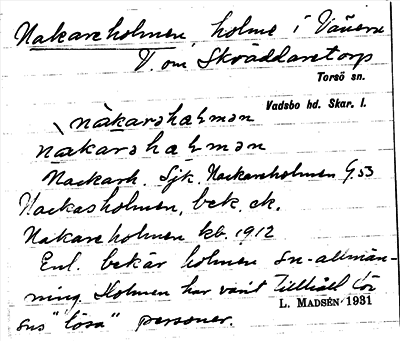 Nakareholmen, holme i Vänern
V. om Skräddaretorp
Torsö sn.
Vadsbo hd. Skar. l.
nàkarəhaɫmən
nakarəhaɫmən
Nackarh. Sjk. Nackareholmen G.53
Nackasholmen, bek. ek.
Nakareholmen kb. 1912
Enl. bekär holmen sn-allmän-
ning. Holmen har varit tillhåll för
sns "lösa" personer.
L. MADSÉN 1931